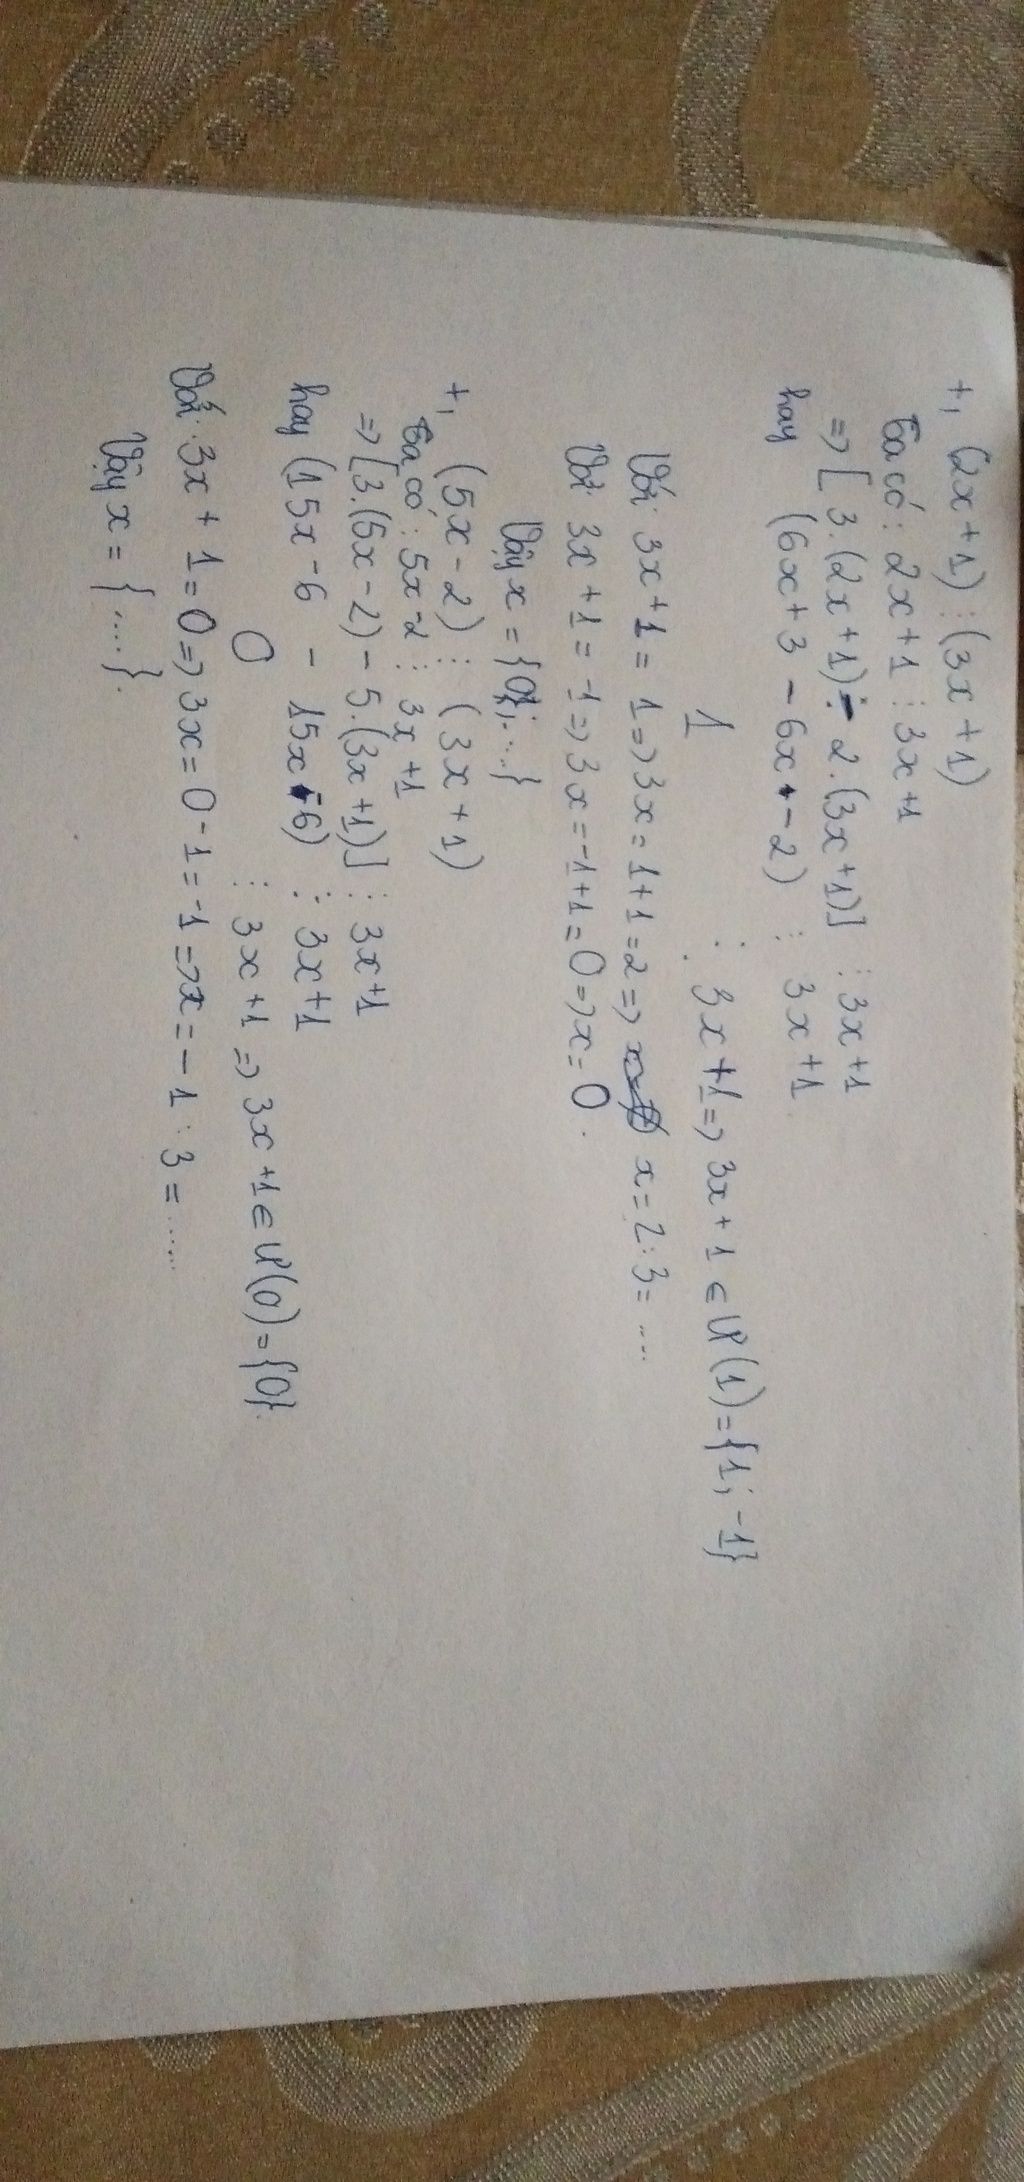 +, (2x+1) ⋮ (3x+1)
Ta có: 2x+1 ⋮ 3x+1
=> [3.(2x+1) - 2.(3x+1)] ⋮ 3x+1
hay (6x+3 - 6x - 2) ⋮ 3x+1
1 ⋮ 3x+1 => 3x+1 ∈ Ư(1) = {1; -1}
Với: 3x+1 = 1 => 3x = 1+1 = 2 => x = 2:3 = ....
Với 3x+1 = -1 => 3x = -1+1 = 0 => x = 0.
Vậy x = {0; ...}
+, (5x-2) ⋮ (3x+1)
Ta có: 5x-2 ⋮ 3x+1
=> [3.(5x-2) - 5.(3x+1)] ⋮ 3x+1
hay (15x-6 - 15x-6) ⋮ 3x+1
0 ⋮ 3x+1 => 3x+1 ∈ Ư(0) = {0}.
Với: 3x+1 = 0 => 3x = 0-1 = -1 => x = -1 : 3 = ......
Vậy x = {....}.